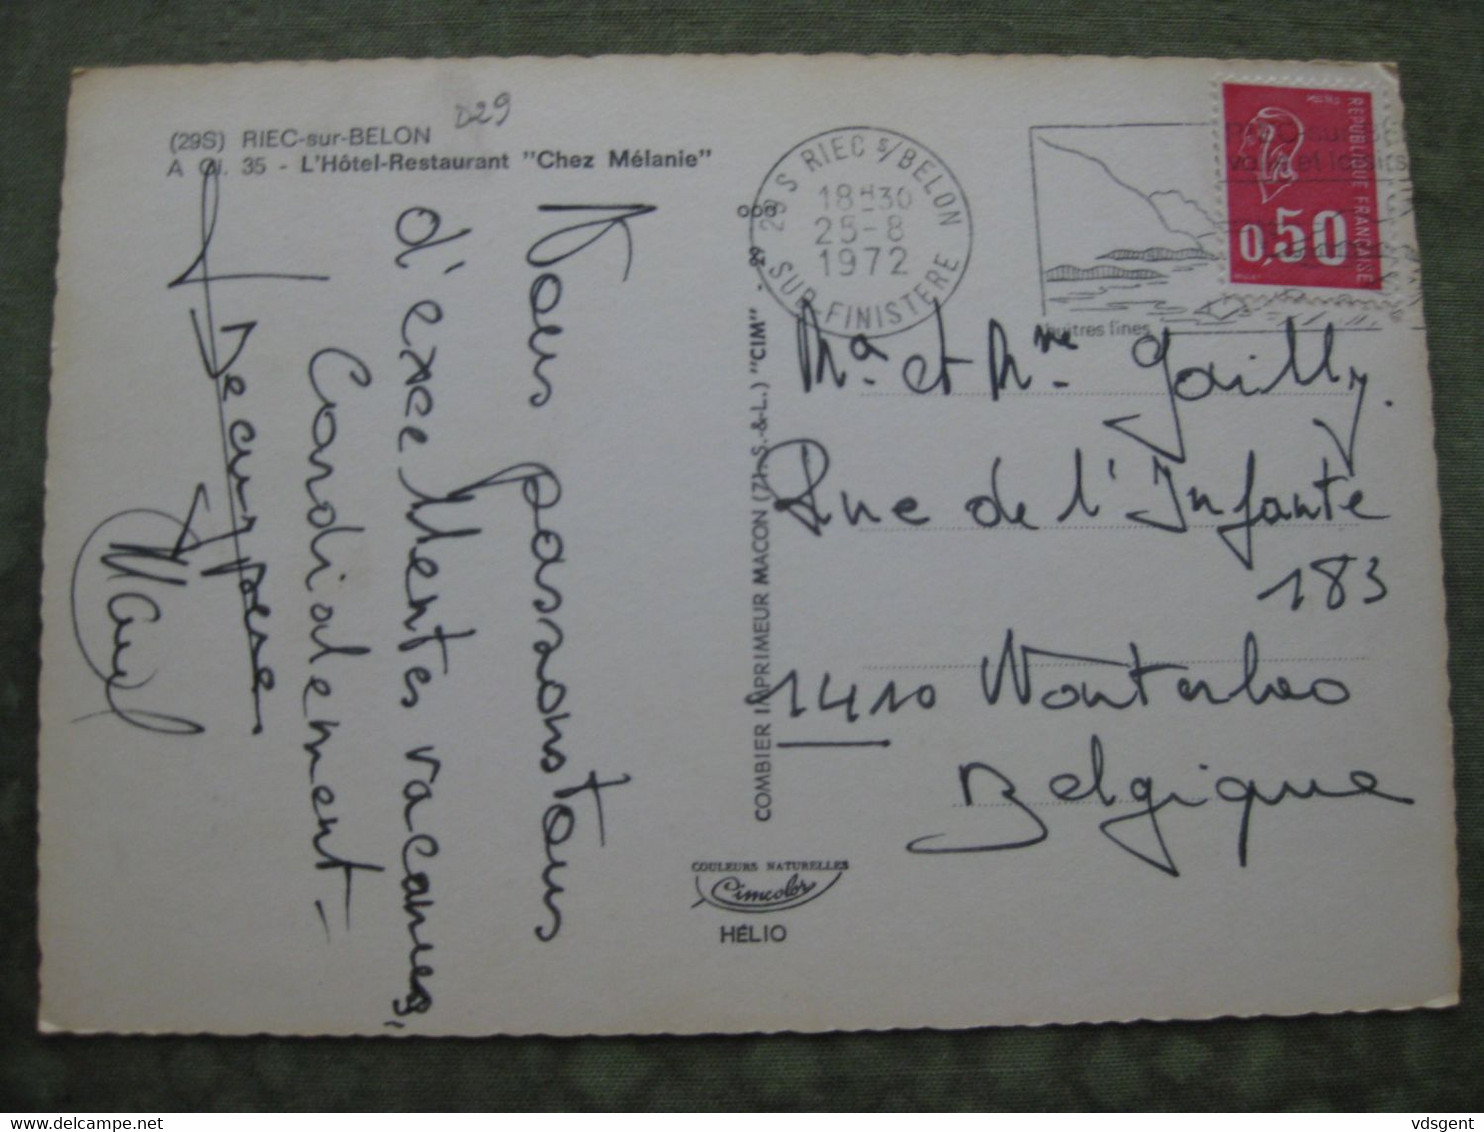 (29S) RIEC-sur-BELON
A Gl. 35 - L'Hôtel-Restaurant "Chez Mélanie"
D29
Nous passons tous
d'excellentes vacances,
Cordialement -
29 S RIEC s/BELON
18H30
25-8
1972
SUD-FINISTERE
huitres fines
REPUBLIQUE FRANÇAISE
0,50
Mr et Mme Jailly.
Rue de l'Infante
183
1410 Waterloo
Belgique
COMBIER IMPRIMEUR MACON (71. S.-&-L.) "CIM"
COULEURS NATURELLES
Cimcolor
HÉLIO
vdsgent
delcampe.net